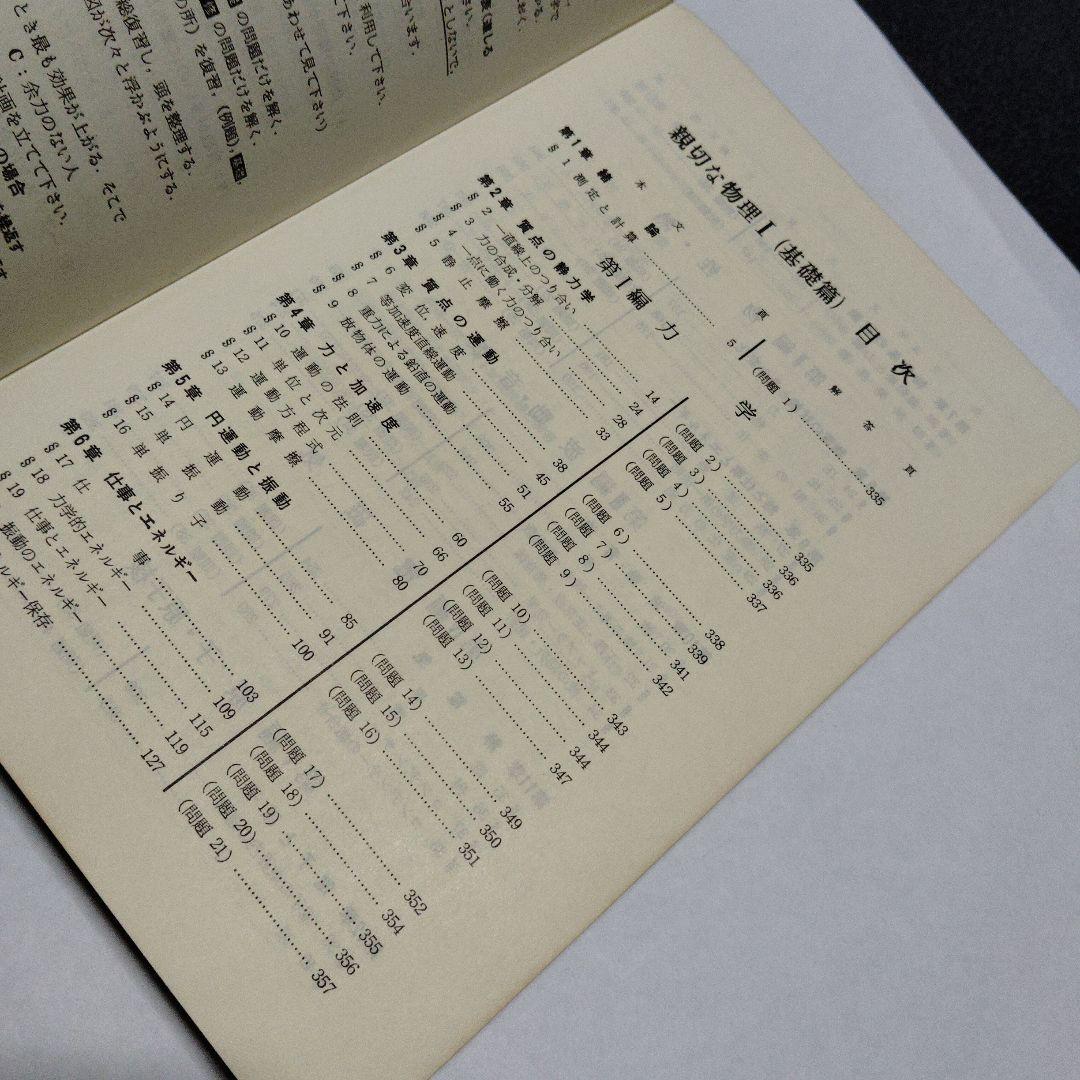 親切な物理 I (基礎篇) 目 次
本 文・頁 解 答 頁
第1章 緒 論
§ 1 測定と計算 5 (問題 1) 335
第 I 編 力 学
第2章 質点の静力学
§ 2 一直線上のつり合い 14 (問題 2) 335
§ 3 力の合成・分解 24 (問題 3) 336
§ 4 一点に働く力のつり合い 28 (問題 4) 336
§ 5 静 止 摩 擦 33 (問題 5) 337
第3章 質点の運動
§ 6 変 位, 速 度 38 (問題 6) 338
§ 7 等加速度直線運動 45 (問題 7) 339
§ 8 重力による鉛直の運動 51 (問題 8) 341
§ 9 放物体の運動 55 (問題 9) 342
第4章 力と加速度
§ 10 運動の法則 60 (問題 10) 343
§ 11 単位と次元 66 (問題 11) 344
§ 12 運動方程式 70 (問題 12) 344
§ 13 運 動 摩 擦 80 (問題 13) 347
第5章 円運動と振動
§ 14 円 運 動 85 (問題 14) 349
§ 15 単 振 動 91 (問題 15) 350
§ 16 単 振 り 子 100 (問題 16) 351
第6章 仕事とエネルギー
§ 17 仕 事 103 (問題 17) 352
§ 18 力学的エネルギー 109 (問題 18) 354
§ 19 仕事とエネルギー 115 (問題 19) 355
振動のエネルギー 119 (問題 20) 356
ルギー保存 127 (問題 21) 357
としないで,
利用して下さい.
あわせて見て下さい)
の問題だけを解く.
の問題だけを解く.
の所) を復習, (例題),
総復習し, 頭を整理する.
図が次々と浮かぶようにする.
とき最も効果が上がる. そこで
C : 余力のない人
計画を立てて下さい.
の場合